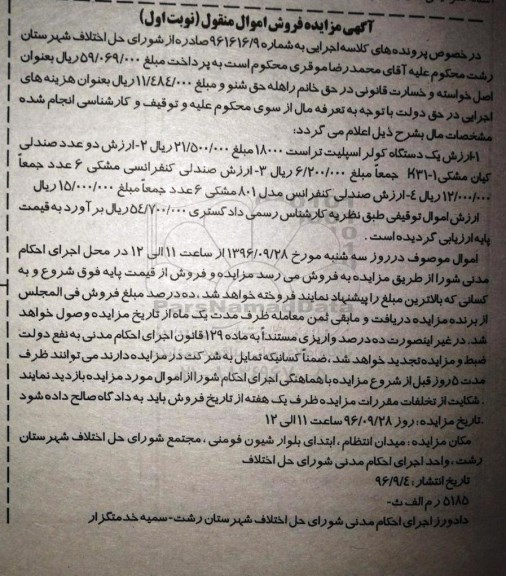 آگهی مزایده فروش اموال منقول (نوبت اول)
در خصوص پرونده های کلاسه اجرایی به شماره ۹۶۱۶۱۶/۹ صادره از شورای حل اختلاف شهرستان
رشت محکوم علیه آقای محمدرضا موقری محکوم است به پرداخت مبلغ ۵۹/۰۶۹/۰۰۰ ریال بعنوان
اصل خواسته و خسارت قانونی در حق خانم راهله حق شنو و مبلغ ۱۱/۴۸۴/۰۰۰ ریال بعنوان هزینه های
اجرایی در حق دولت با توجه به تعرفه مال از سوی محکوم علیه و توقیف و کارشناسی انجام شده
مشخصات مال بشرح ذیل اعلام می گردد:
۱-ارزش یک دستگاه کولر اسپلیت تراست ۱۸۰۰۰ مبلغ ۲۱/۵۰۰/۰۰۰ ریال ۲-ارزش دو عدد صندلی
کیان مشکی K۳۱-۱ جمعاً مبلغ ۶/۲۰۰/۰۰۰ ریال ۳-ارزش صندلی کنفرانسی مشکی ۶ عدد جمعاً
۱۲/۰۰۰/۰۰۰ ریال ٤-ارزش صندلی کنفرانس مدل ۸۰۱ مشکی ۶ عدد جمعاً مبلغ ۱۵/۰۰۰/۰۰۰ ریال
ارزش اموال توقیفی طبق نظریه کارشناس رسمی دادگستری ۵٤/۷۰۰/۰۰۰ ریال برآورد به قیمت
پایه ارزیابی گردیده است.
اموال موصوف در روز سه شنبه مورخ ۱۳۹۶/۰۹/۲۸ از ساعت ۱۱ الی ۱۲ در محل اجرای احکام
مدنی شورا از طریق مزایده به فروش می رسد مزایده و فروش از قیمت پایه فوق شروع و به
کسانی که بالاترین مبلغ را پیشنهاد نمایند فروخته خواهد شد، ده درصد مبلغ فروش فی المجلس
از برنده مزایده دریافت و مابقی ثمن معامله ظرف مدت یک ماه از تاریخ مزایده وصول خواهد
شد. در غیر اینصورت ده درصد واریزی مستنداً به ماده ۱۲۹ قانون اجرای احکام مدنی به نفع دولت
ضبط و مزایده تجدید خواهد شد. ضمناً کسانیکه تمایل به شرکت در مزایده دارند می توانند ظرف
مدت ۵ روز قبل از شروع مزایده با هماهنگی اجرای احکام شورا از اموال مورد مزایده بازدید نمایند
. شکایت از تخلفات مقررات مزایده ظرف یک هفته از تاریخ فروش باید به دادگاه صالح داده شود
.تاریخ مزایده: روز ۹۶/۰۹/۲۸ ساعت ۱۱ الی ۱۲
مکان مزایده: میدان انتظام، ابتدای بلوار شیون فومنی، مجتمع شورای حل اختلاف شهرستان
رشت، واحد اجرای احکام مدنی شورای حل اختلاف
تاریخ انتشار: ۹۶/۹/٤
۵۱۸۵ ر م الف ث-
دادورز اجرای احکام مدنی شورای حل اختلاف شهرستان رشت-سمیه خدمتگزار